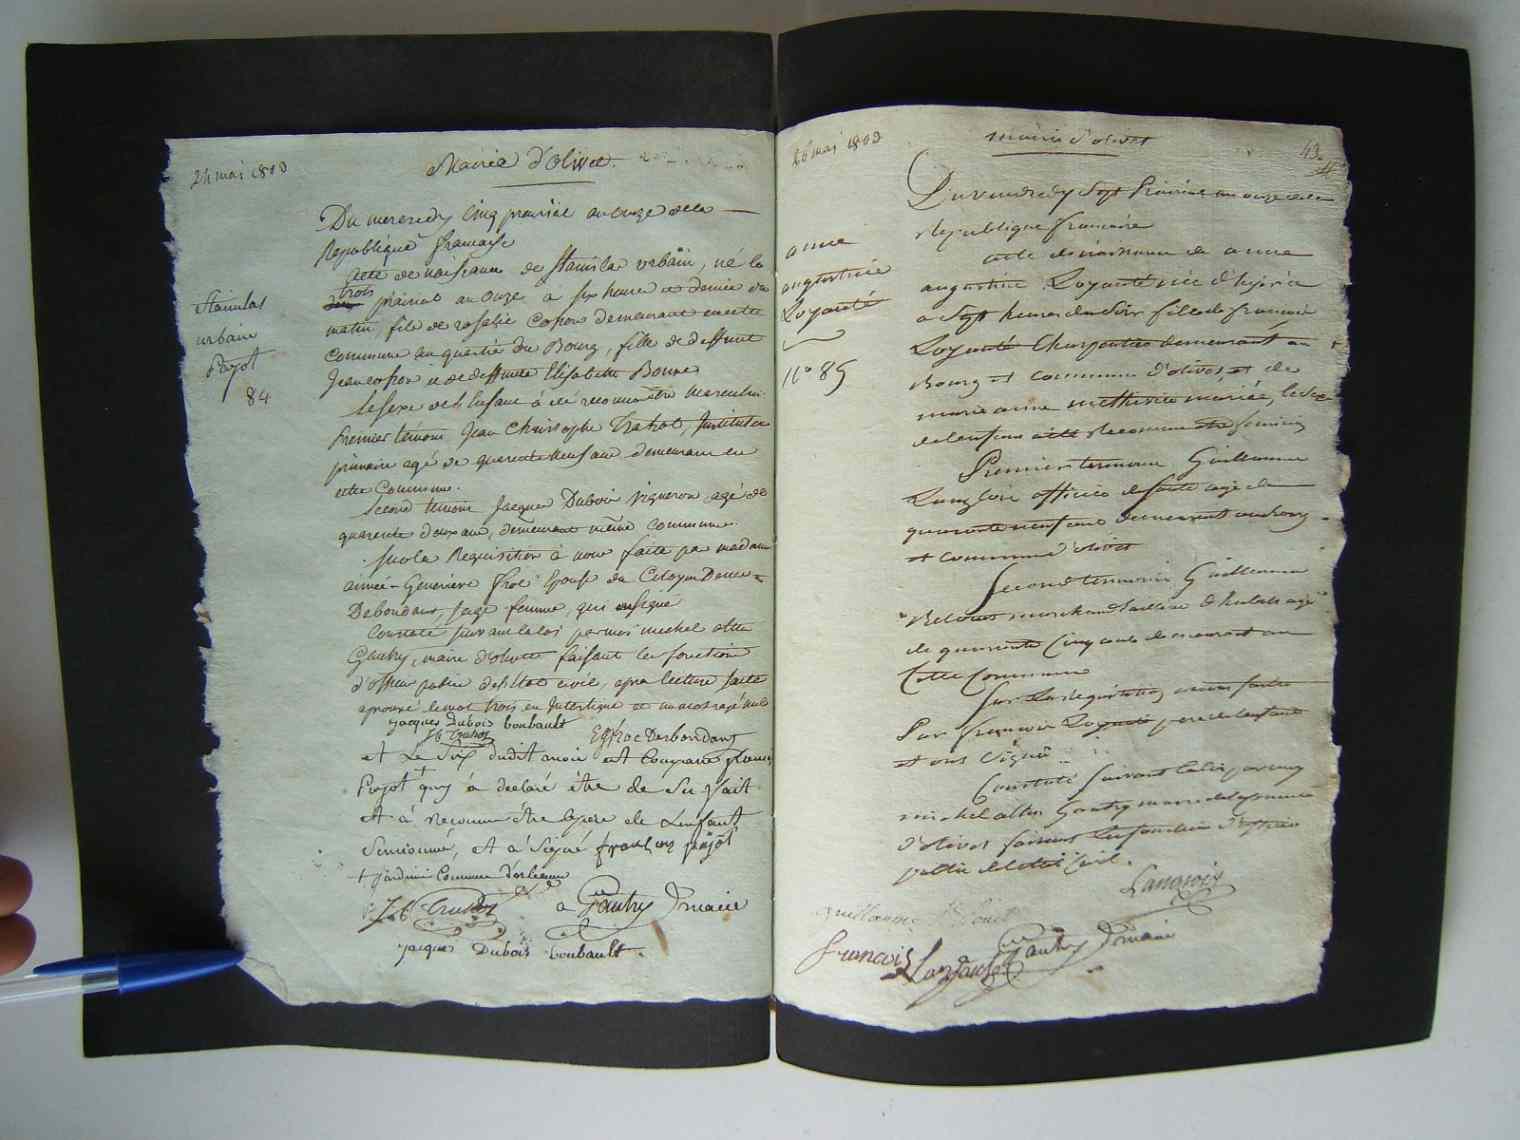 24 mai 1803
Mairie d'olivet
Stanislas
urbain
Pajot
84
Du mercredy cinq prairial an onze de la
Republique francaise
Acte de naissance de Stanislas urbain, né le
trois
prairial an onze à six heure et demie du
matin, fils de rosalie Cosson demeurant en cette
Commune au quartie du Bourg, fille de deffunt
Jean cosson et de deffunte Elisabeth Bonne
Le sexe de l'enfant à été reconnu être masculin
Premier temoin Jean Christophe Trahot, Instituteur
primaire agé de quarente neuf ans demeurant en
cette Commune.
Second temoin Jacques Dubois vigneron agé de
quarente deux ans, demeurant même commune.
sur la Requisition à nous faite par madame
aimée-Genevieve froc Epouse du Citoyen
Debondans, sage femme, qui signé
Constaté suivant la loi par moi michel
Gautry, maire d'olivet faisant les fonctions
d'officier public de l'Etat civil, apres lecture faite
aprouvé le mot trois en Interligne et un mot rayé nul
jacques Dubois boubault
et Le Six dudit mois est Comparu francois
Pajot + qui à declaré être de Su fait
et à reconnu être le pere de Lenfant
Susnommé, et à Signé françois pajot
+ jardinier Commune d'orleans
Gautry maire
jacques Dubois boubault.
26 mai 1803
mairie d'olivet
43
anne
augustine
Loyauté
n° 85
Du vendredy Sept Prairial an onze de la
Republique francaise
acte de naissance de anne
augustine Loyauté née d'hyer
a Sept heures du Soir fille de francois
Loyauté Charpentier demeurant au
Bourg et commune d'olivet, et de
marie anne mariée, le Sexe
de lenfant a été Reconnu etre feminin
Premier temoin Guillaume
Langlois officier de Santé agé de
quarante neuf ans demeurant au bourg
et commune d'olivet
Second temoin Guillaume
marchand
de quarante Cinq ans demeurant en
Cette Commune
Sur La requisition a nous faite
Par francois Loyauté pere de lenfant
et ont Signé
Constaté Suivant la loi par moy
michel Gautry maire de la commune
d'olivet faisant les fonctions d'officier
public de l'etat Civil.
Langlois
guillaume
francois Loyauté
Gautry maire